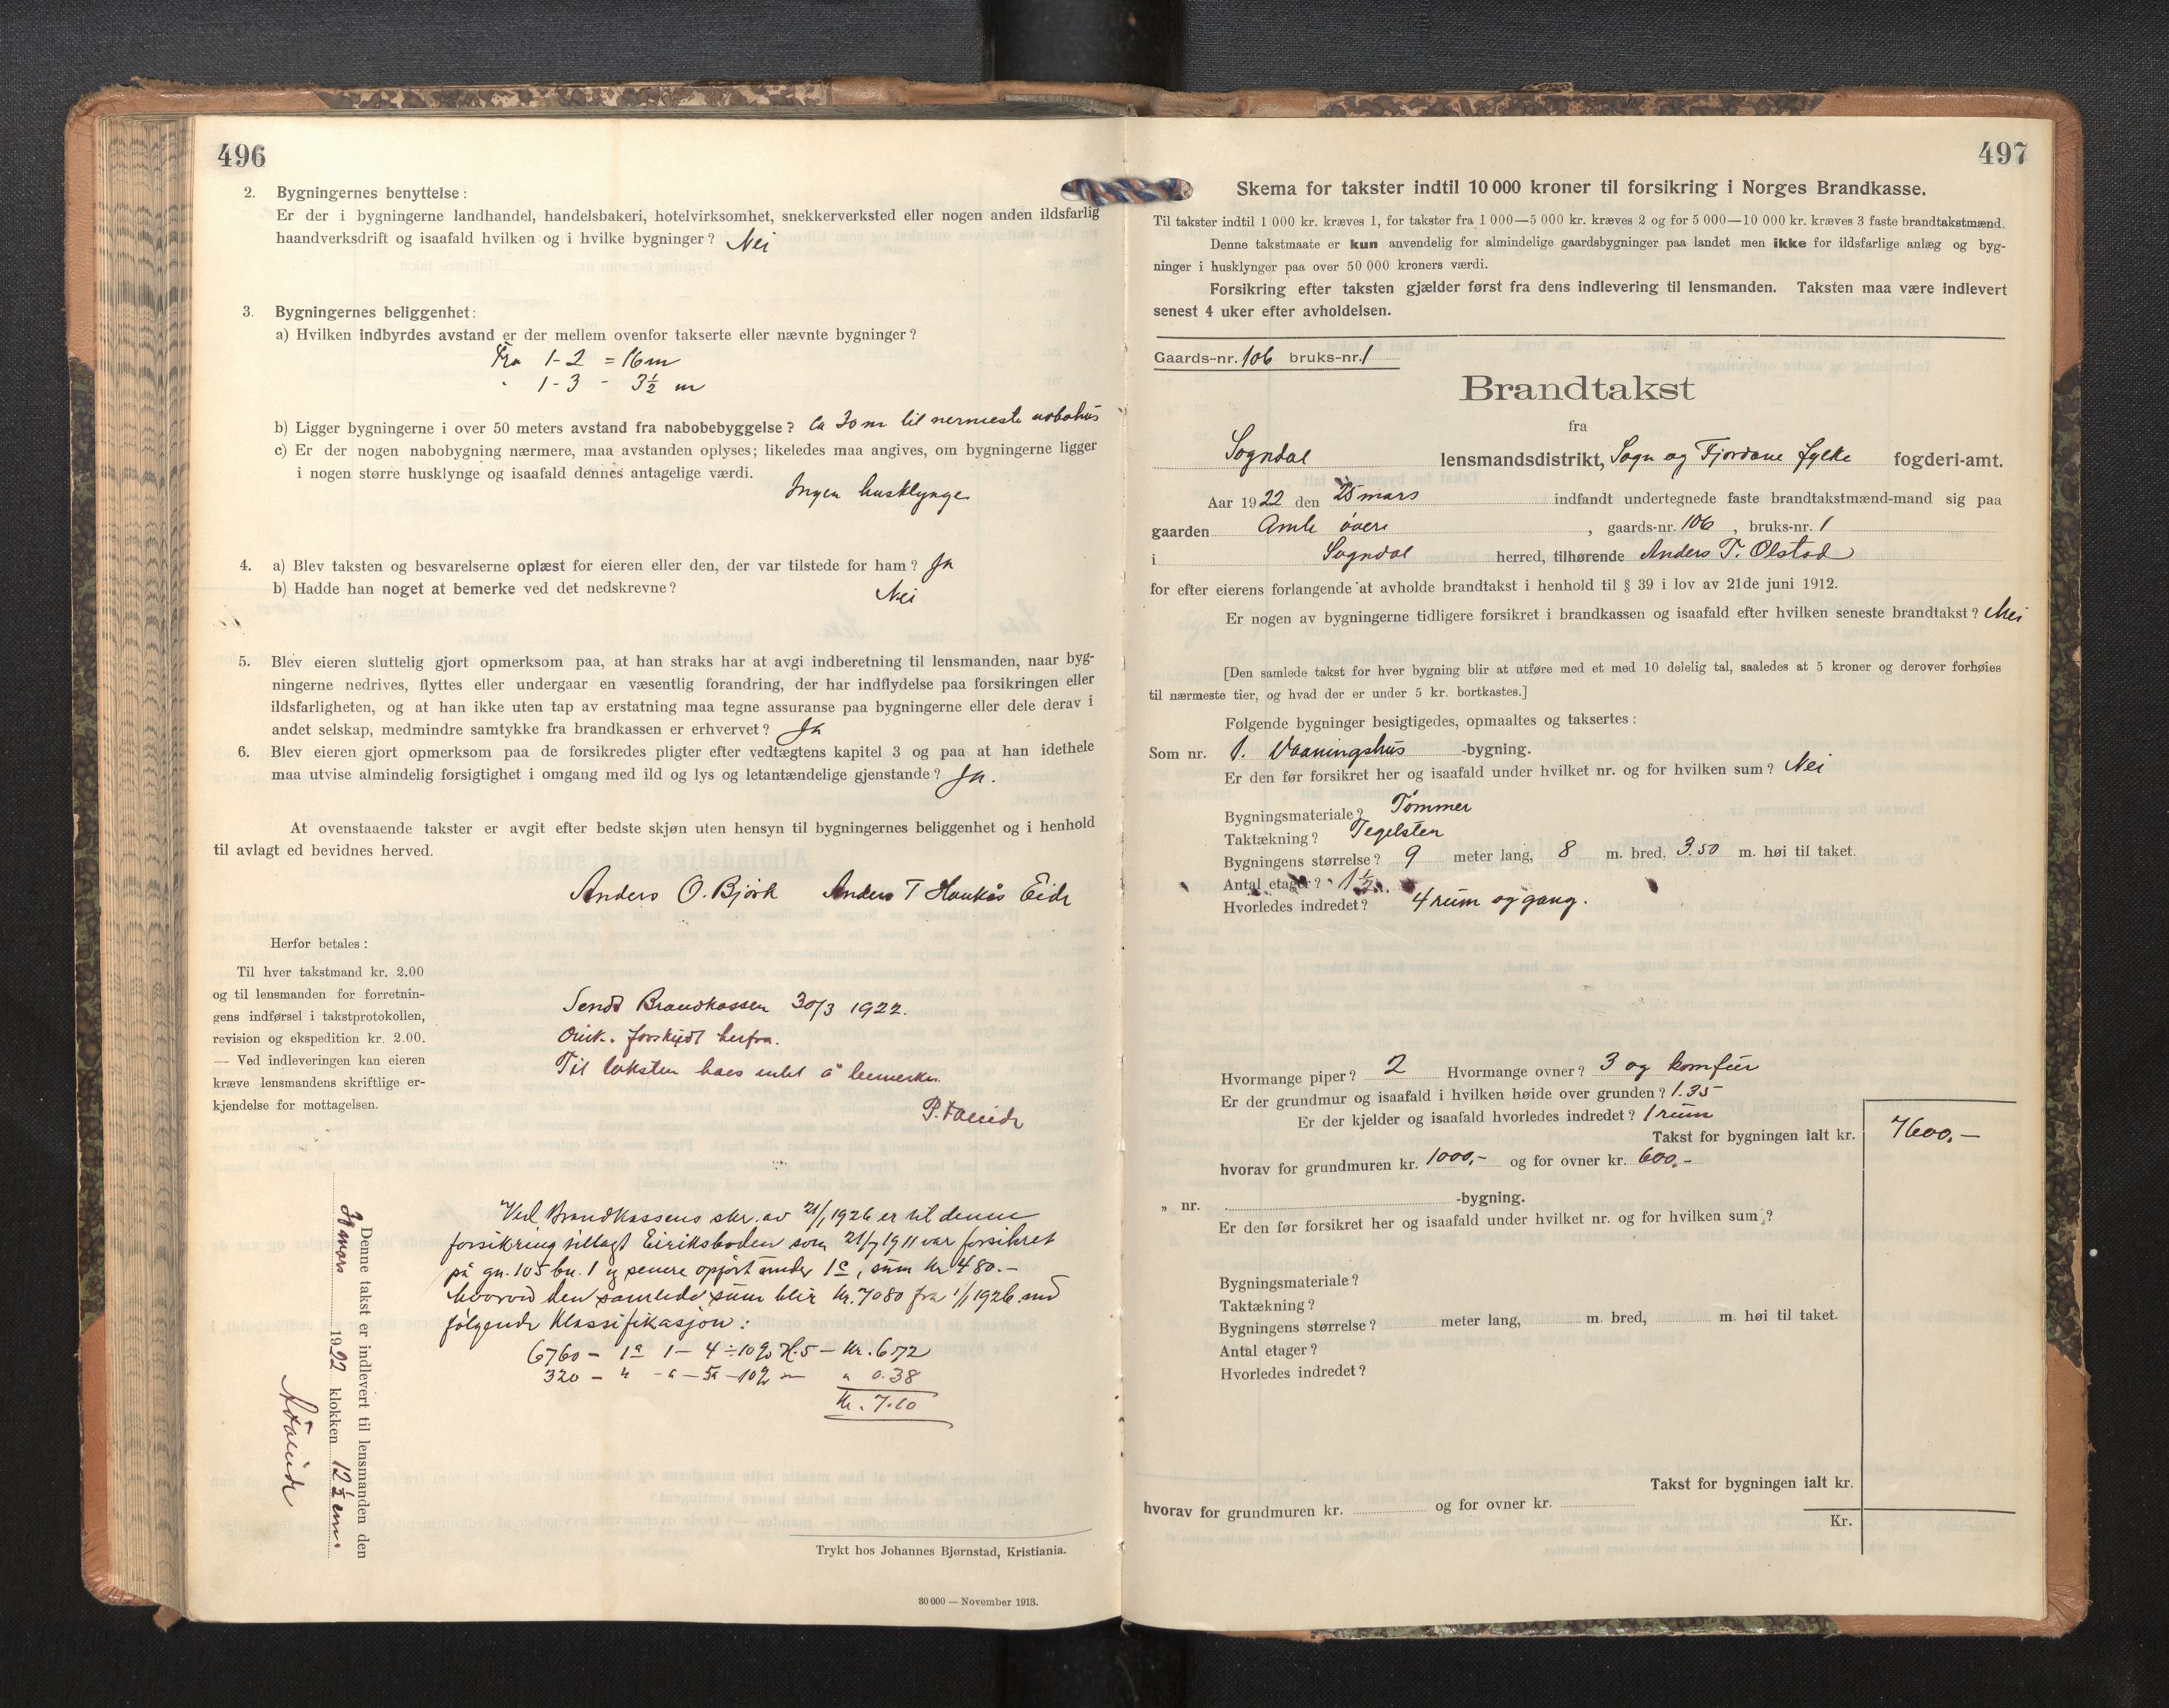 496
2. Bygningernes benyttelse:
Er der i bygningerne landhandel, handelsbakeri, hotelvirksomhet, snekkerverksted eller nogen anden ildsfarlig
haandverksdrift og isaafald hvilken og i hvilke bygninger? Nei
3. Bygningernes beliggenhet:
a) Hvilken indbyrdes avstand er der mellem ovenfor takserte eller nævnte bygninger?
Fra 1-2 = 16 m
" 1-3 - 3½ m
b) Ligger bygningerne i over 50 meters avstand fra nabobebyggelse? Ca 30 m til nermeste nabohus
c) Er der nogen nabobygning nærmere, maa avstanden oplyses; likeledes maa angives, om bygningerne ligger
i nogen større husklynge og isaafald dennes antagelige værdi.
Ingen husklynge
4. a) Blev taksten og besvarelserne oplæst for eieren eller den, der var tilstede for ham? Ja
b) Hadde han noget at bemerke ved det nedskrevne? Nei
5. Blev eieren sluttelig gjort opmerksom paa, at han straks har at avgi indberetning til lensmanden, naar byg-
ningerne nedrives, flyttes eller undergaar en væsentlig forandring, der har indflydelse paa forsikringen eller
ildsfarligheten, og at han ikke uten tap av erstatning maa tegne assuranse paa bygningerne eller dele derav i
andet selskap, medmindre samtykke fra brandkassen er erhvervet? Ja
6. Blev eieren gjort opmerksom paa de forsikredes pligter efter vedtægtens kapitel 3 og paa at han idethele
maa utvise almindelig forsigtighet i omgang med ild og lys og letantændelige gjenstande? Ja.
At ovenstaaende takster er avgit efter bedste skjøn uten hensyn til bygningernes beliggenhet og i henhold
til avlagt ed bevidnes herved.
Anders O. Bjørk Anders T Haukås Eide
Herfor betales:
Til hver takstmand kr. 2.00
og til lensmanden for forretnin-
gens indførsel i takstprotokollen,
revision og ekspedition kr. 2.00.
— Ved indleveringen kan eieren
kræve lensmandens skriftlige er-
kjendelse for mottagelsen.
Sendt Brandkassen 30/3 1922.
forskudt herfra.
Til taksten haes intet å bemerke.
Denne takst er indlevert til lensmanden den
30 mars 1922 klokken 12½ em.
Ved Brandkassens skr. av 21/1 1926 er til denne
forsikring tillagt Eiriksboden som 21/7 1911 var forsikret
på gn. 105 bn. 1 og senere opført under 1c, sum kr 480.-
hvorved den samlede sum blir kr. 7080 fra 1/1 1926 med
følgende klassifikasjon:
6760 - 1a 1 - 4 ÷ 10% H.5 - kr. 6.72
320 - " - " - 5a - 10% - " 0.38
kr. 7.10
Trykt hos Johannes Bjørnstad, Kristiania.
30 000 — November 1913.
497
Skema for takster indtil 10 000 kroner til forsikring i Norges Brandkasse.
Til takster indtil 1 000 kr. kræves 1, for takster fra 1 000—5 000 kr. kræves 2 og for 5 000—10 000 kr. kræves 3 faste brandtakstmænd.
Denne takstmaate er kun anvendelig for almindelige gaardsbygninger paa landet men ikke for ildsfarlige anlæg og byg-
ninger i husklynger paa over 50 000 kroners værdi.
Forsikring efter taksten gjælder først fra dens indlevering til lensmanden. Taksten maa være indlevert
senest 4 uker efter avholdelsen.
Gaards-nr. 106 bruks-nr. 1
Brandtakst
fra
Sogndal lensmandsdistrikt, Sogn og Fjordane fylke fogderi-amt.
Aar 1922 den 25 mars indfandt undertegnede faste brandtakstmænd-mand sig paa
gaarden Amle øvere, gaards-nr. 106, bruks-nr. 1
i Sogndal herred, tilhørende Anders T. Olstad
for efter eierens forlangende at avholde brandtakst i henhold til § 39 i lov av 21de juni 1912.
Er nogen av bygningerne tidligere forsikret i brandkassen og isaafald efter hvilken seneste brandtakst? Nei
[Den samlede takst for hver bygning blir at utføre med et med 10 delelig tal, saaledes at 5 kroner og derover forhøies
til nærmeste tier, og hvad der er under 5 kr. bortkastes.]
Følgende bygninger besigtigedes, opmaaltes og taksertes:
Som nr. 1. Vaaningshus -bygning.
Er den før forsikret her og isaafald under hvilket nr. og for hvilken sum? Nei
Bygningsmateriale? Tømmer
Taktækning? Tegelsten
Bygningens størrelse? 9 meter lang, 8 m. bred, 3.50 m. høi til taket.
Antal etager? 1½.
Hvorledes indredet? 4 rum og gang.
Hvormange piper? 2 Hvormange ovner? 3 og komfur
Er der grundmur og isaafald i hvilken høide over grunden? 1.35
Er der kjelder og isaafald hvorledes indredet? 1 rum
Takst for bygningen ialt kr. 7600,-
hvorav for grundmuren kr. 1000,- og for ovner kr. 600,-
„ nr. -bygning.
Er den før forsikret her og isaafald under hvilket nr. og for hvilken sum?
Bygningsmateriale?
Taktækning?
Bygningens størrelse? meter lang, m. bred, m. høi til taket.
Antal etager?
Hvorledes indredet?
Takst for bygningen ialt kr.
hvorav for grundmuren kr. og for ovner kr.
Kr.